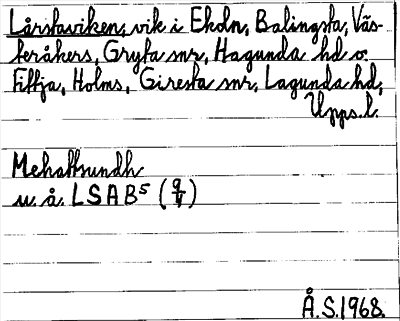 Lårstaviken, vik i Ekoln, Balingsta, Väs-
teråkers, Gryta snr, Hagunda hd o.
Fittja, Holms, Giresta snr, Lagunda hd,
Upps. l.
u. å. LSAB⁵ (9/4)
Å.S. 1968.